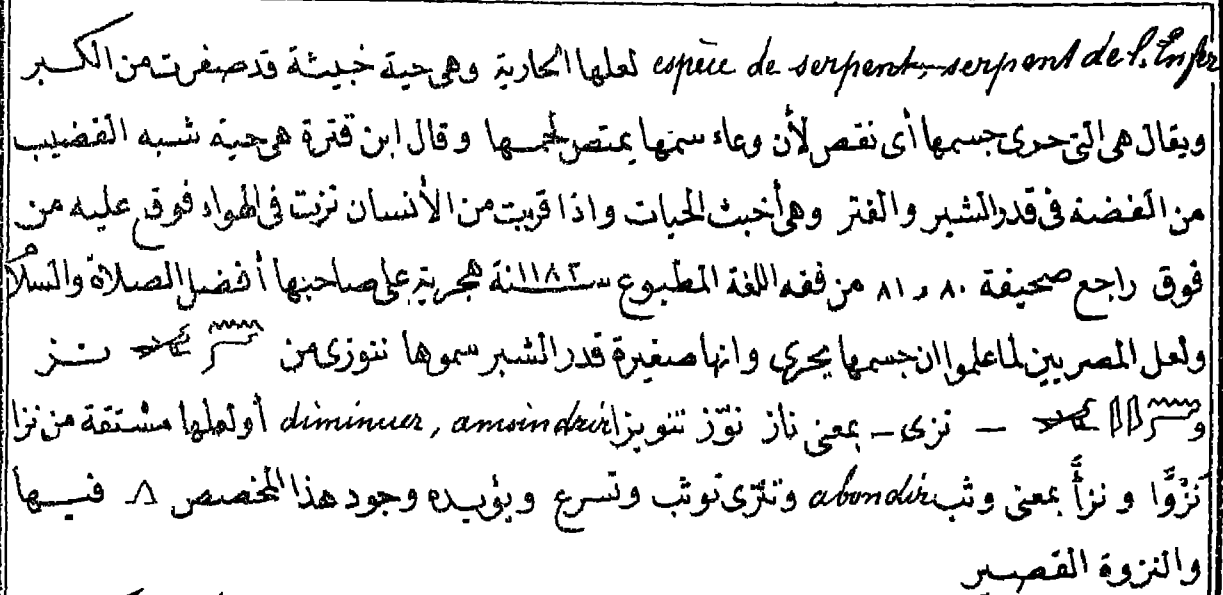 espèce de serpent, serpent de l'Enfer لعلها الحارية وهى حية خبيثة قد صغرت من الكبر
ويقال هى التى حرى جسمها أى نقص لأن وعاء سمها يمتص لحمها وقال ابن قترة هى حية شبه القضيب
من الفضة فى قدر الشبر والفتر وهى أخبث الحيات واذا قربت من الأنسان نزت فى الهواء فوقع عليه من
فوق راجع صحيفة ٨٠ و ٨١ من فقه اللغة المطبوع سنة ١١٨٢ هجرية على صاحبها أفضل الصلاة والسلام
ولعل المصريين لما علموا ان جسمها يحرى وانها صغيرة قدر الشبر سموها ننوزى من نز
و – نزى – بمعنى ناز نوّز تنويزا diminuer, amoindrir أو لعلها مشتقة من نزا
نَزْوًا و نزأً بمعنى وثب abondir وتنزّى توثب وتسرع ويؤيده وجود هذا المخصص فيها
والنزوة القصير